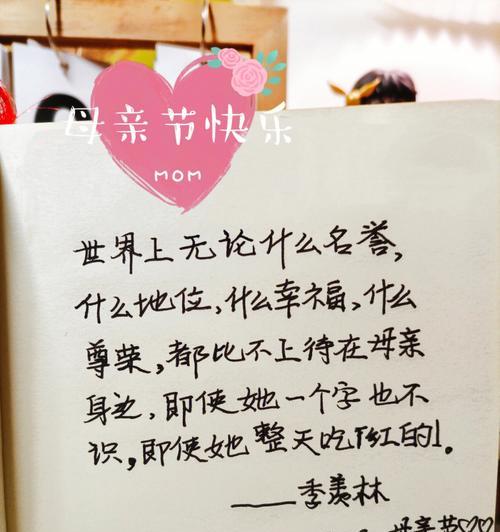 母亲节快乐
MOM
世界上无论什么名誉,
什么地位,什么幸福,什么
尊荣,都比不上待在母亲
身边,即使她一个字也不
识,即使她整天吃「红的」。
——季羡林
母亲节♡♡